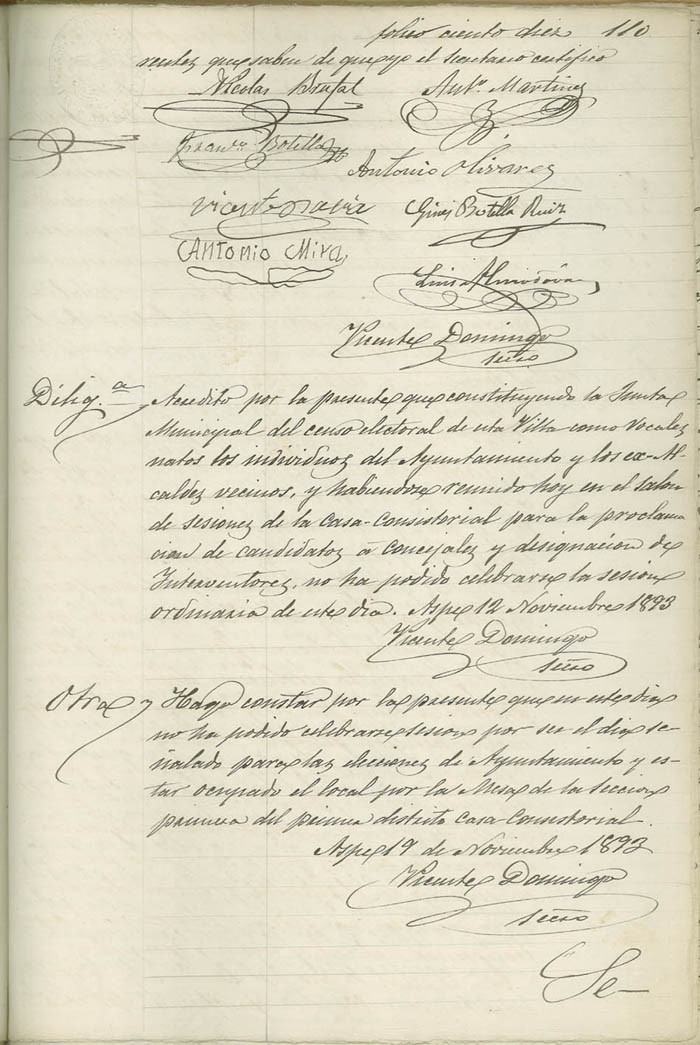 folio ciento diez 110
rentes que saben de que yo el secretario certifico
Nicolas Brufal Antº. Martinez
Franco. Botella
Antonio Olivares
Vicente Pavía Gines Botella Ruiz
Antonio Mira
Luis Almodóvar
Vicente Domingo
Secro
Dilig.a Acredito por la presente que constituyendo la Junta
Municipal del censo electoral de esta Villa como vocales
natos los individuos del Ayuntamiento y los ex-Al-
caldes vecinos, y habiendose reunido hoy en el salon
de sesiones de la casa-consistorial para la proclama
cion de candidatos á concejales y designacion de
Interventores, no ha podido celebrarse la sesion
ordinaria de este dia. Aspe 12 Noviembre 1893
Vicente Domingo
Secro
Otra Hago constar por la presente que en este dia
no ha podido celebrarse sesion por ser el dia se-
ñalado para las elecciones de Ayuntamiento y es-
tar ocupado el local por la Mesa de la seccion
primera del primer distrito casa-consistorial.
Aspe 19 de Noviembre 1893
Vicente Domingo
Secro
Se-